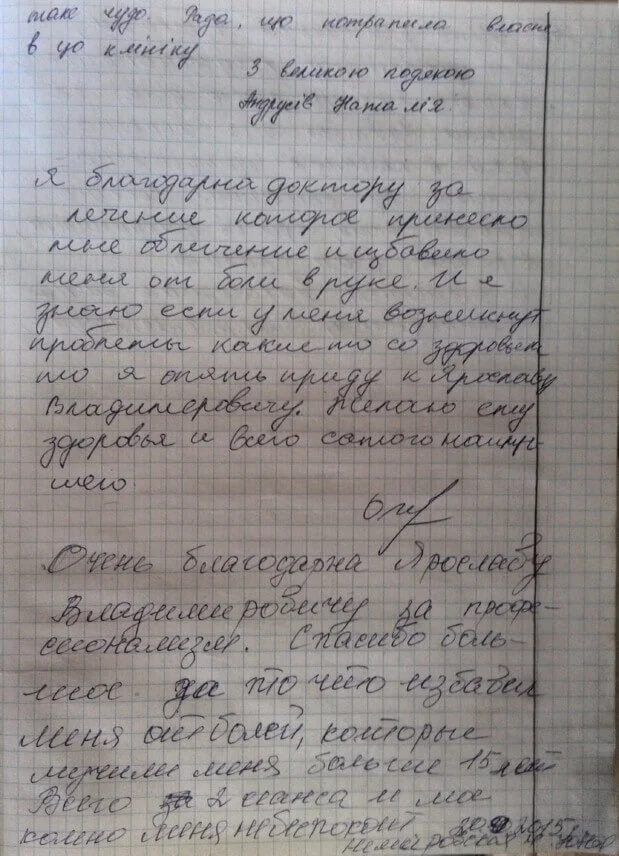 таке чудо. Рада, що потрапила власне
в цю клініку
З великою подякою
Андрусів Наталія.
Я благодарна доктору за
лечение которое принесло
мне обличение и избавило
меня от боли в руке. И я
знаю если у меня возникнут
проблемы какие то со здоровьем
то я опять приду к Ярославу
Владимеровичу. Желаю ему
здоровья и всего самого наилуч-
шего.
Очень благодарна Ярославу
Владимировичу за профе-
сионализм. Спасибо боль-
шое за то что избавил
меня от болей, которые
мучили меня больше 15 лет
Всего 2 сианса и мое
колено меня не беспокоит